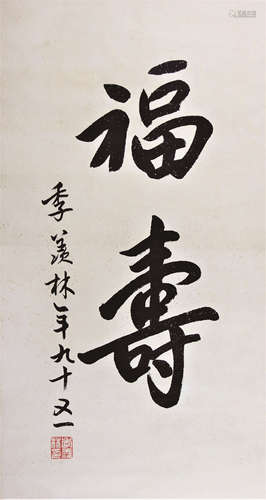 福壽
季羨林年九十又一